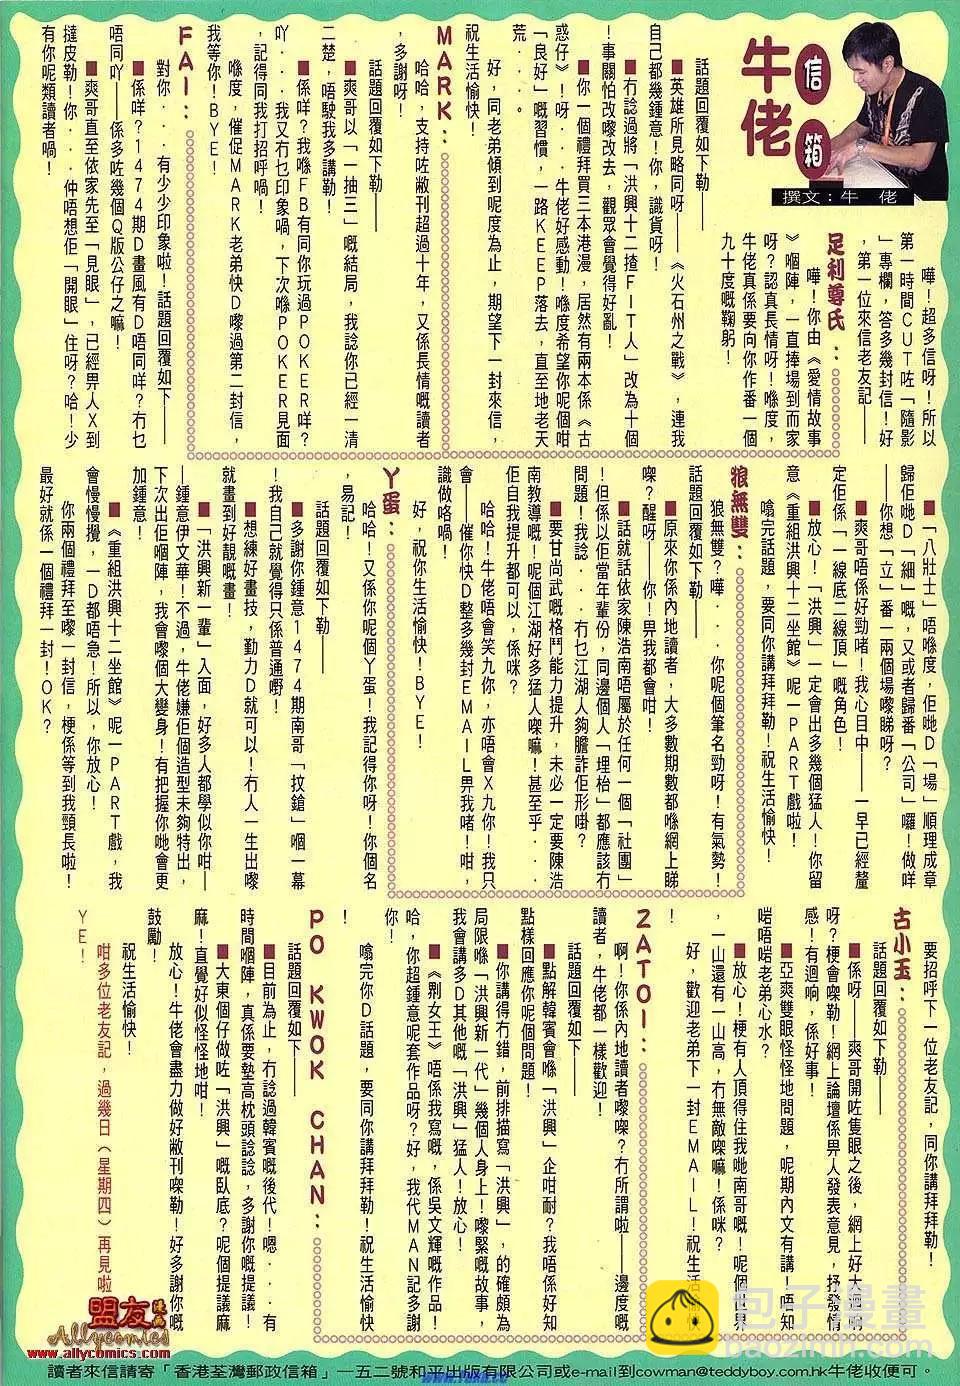 牛佬
信箱
撰文：牛 佬
嘩！超多信呀！所以
第一時間CUT咗「隨影
」專欄，答多幾封信！好
，第一位來信老友記——
足利尊氏：
嘩！你由《愛情故事
》嗰陣，一直捧場到而家
呀？認真長情呀！喺度，
牛佬真係要向你作番一個
九十度嘅鞠躬！
話題回覆如下勒——
■英雄所見略同呀——《火石州之戰》，連我
自己都幾鍾意！你，識貨呀！
■冇諗過將「洪興十二揸FIT人」改為十個
！事關怕改嚟改去，觀眾會覺得好亂！
■你一個禮拜買三本港漫，居然有兩本係《古
惑仔》！呀．．．牛佬好感動！喺度希望你呢個咁
「良好」嘅習慣，一路KEEP落去，直至地老天
荒．．．。
好，同老弟傾到呢度為止，期望下一封來信，
祝生活愉快！
MARK：
哈哈，支持咗敝刊超過十年，又係長情嘅讀者
，多謝呀！
話題回覆如下勒——
■爽哥以「一抽三」嘅結局，我諗你已經一清
二楚，唔駛我多講勒！
■係咩？我喺FB有同你玩過POKER咩？
吖．．．我又冇乜印象喎，下次喺POKER見面
，記得同我打招呼喎！
喺度，催促MARK老弟快D嚟過第二封信，
我等你！BYE！
FAI：
對你．．．有少少印象啦！話題回覆如下——
■係咩？1474期D畫風有D唔同咩？冇乜
唔同吖——係多咗幾個Q版公仔之嘛！
■爽哥直至依家先至「見眼」，已經畀人X到
撻皮勒！你．．．仲唔想佢「開眼」住呀？哈！少
有你呢類讀者喎！
■「八壯士」唔喺度，佢哋D「場」順理成章
歸佢哋D「細」嘅，又或者歸番「公司」囉！做咩
——你想「立」番一兩個場嚟睇呀？
■爽哥唔係好勁啫！我心目中——一早已經釐
定佢係「一線底二線頂」嘅角色！
■放心！「洪興」一定會出多幾個猛人！你留
意《重組洪興十二坐館》呢一PART戲啦！
噏完話題，要同你講拜拜勒！祝生活愉快！
狼無雙：
狼無雙？嘩．．．你呢個筆名勁呀！有氣勢！
話題回覆如下勒——
■原來你係內地讀者，大多數期數都喺網上睇
㗎？醒呀——你！畀我都會咁！
■話就話依家陳浩南唔屬於任何一個「社團」
！但係以佢當年輩份，同邊個人「埋枱」都應該冇
問題！我諗．．．冇乜江湖人夠膽詐佢形掛？
■要甘尚武嘅格鬥能力提升，未必一定要陳浩
南教導嘅！呢個江湖好多猛人㗎嘛！甚至乎．．．
佢自我提升都可以，係咪？
哈哈！牛佬唔會笑九你，亦唔會X九你！我只
會——催你快D整多幾封EMAIL畀我啫！咁，
識做咯喎！
好，祝你生活愉快！BYE！
丫蛋：
哈哈！又係你呢個丫蛋！我記得你呀！你個名
，易記！
話題回覆如下勒——
■多謝你鍾意1474期南哥「扠鎗」嗰一幕
！我自己就覺得只係普通嘢！
■想練好畫技，勤力D就可以！冇人一生出嚟
就畫到好靚嘅畫！
■「洪興新一輩」入面，好多人都學似你咁—
—鍾意伊文華！不過，牛佬嫌佢個造型未夠特出，
下次出佢嗰陣，我會嚟個大變身！有把握你哋會更
加鍾意！
■《重組洪興十二坐館》呢一PART戲，我
會慢慢攪，一D都唔急！所以，你放心！
你兩個禮拜至嚟一封信，梗係等到我頸長啦！
最好就係一個禮拜一封！OK？
要招呼下一位老友記，同你講拜拜勒！
古小玉：
話題回覆如下勒——
■係呀——爽哥開咗隻眼之後，網上好大迴響
呀？梗會㗎勒！網上論壇係畀人發表意見，抒發情
感！有迴响，係好事！
■亞爽雙眼怪怪地問題，呢期內文有講！唔知
啱唔啱老弟心水？
■放心！梗有人頂得住我哋南哥嘅！呢個世界
，一山還有一山高，冇無敵㗎嘛！係咪？
好，歡迎老弟下一封EMAIL！祝生活愉快
！
ZATOI：
啊！你係內地讀者嚟㗎？冇所謂啦——邊度嘅
讀者，牛佬都一樣歡迎！
話題回覆如下——
■點解韓賓會喺「洪興」企咁耐？我唔係好知
點樣回應你呢個問題！
■你講得冇錯，前排描寫「洪興」，的確頗為
局限喺「洪興新一代」幾個人身上！嚟緊嘅故事，
我會講多D其他嘅「洪興」猛人！放心！
■《刑女王》唔係我寫嘅，係吳文輝嘅作品！
哈，你超鍾意呢套作品呀？好，我代MAN記多謝
你！
噏完你D話題，要同你講拜拜勒！祝生活愉快
！
PO KWOK CHAN：
話題回覆如下——
■目前為止，冇諗過韓賓嘅後代！嗯．．．有
時間嗰陣，真係要墊高枕頭諗諗，多謝你嘅提議！
■大東個仔做咗「洪興」嘅臥底？呢個提議麻
麻！直覺好似怪怪地咁！
放心！牛佬會盡力做好敝刊㗎勒！好多謝你嘅
鼓勵！
祝生活愉快！
咁多位老友記，過幾日（星期四）再見啦
YE！
盟友
Allycomics
www.allycomics.com
包子漫畫
baozimh.com
讀者來信請寄「香港荃灣郵政信箱」一五二號和平出版有限公司或e-mail到cowman@teddyboy.com.hk牛佬收便可。